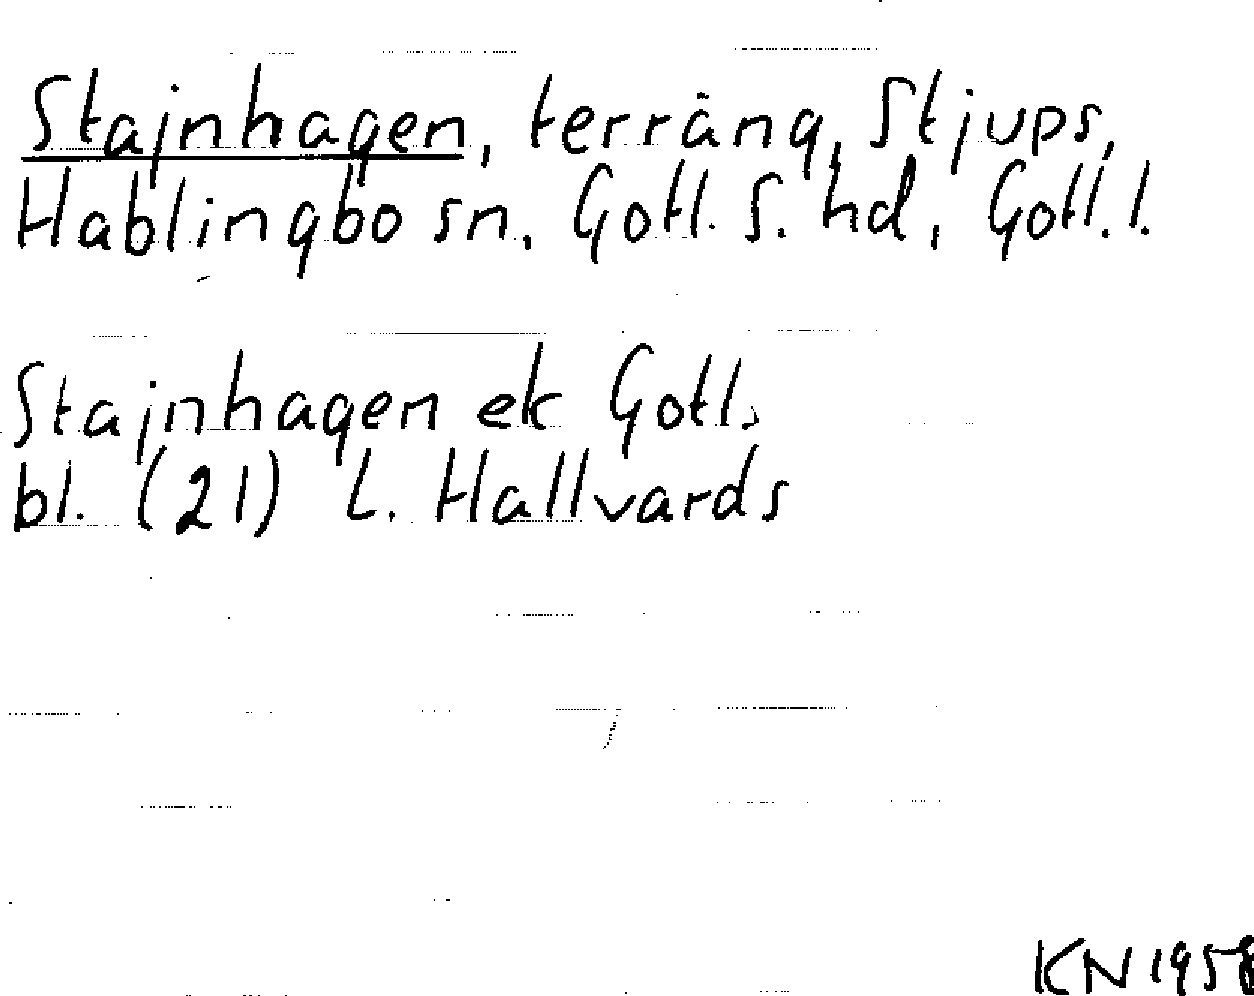 Stajnhagen, terräng, Stjups,
Hablingbo sn. Gotl. S. hd, Gotl. l.
Stajnhagen ek Gotl.
bl. (21) L. Hallvards
KN 1958